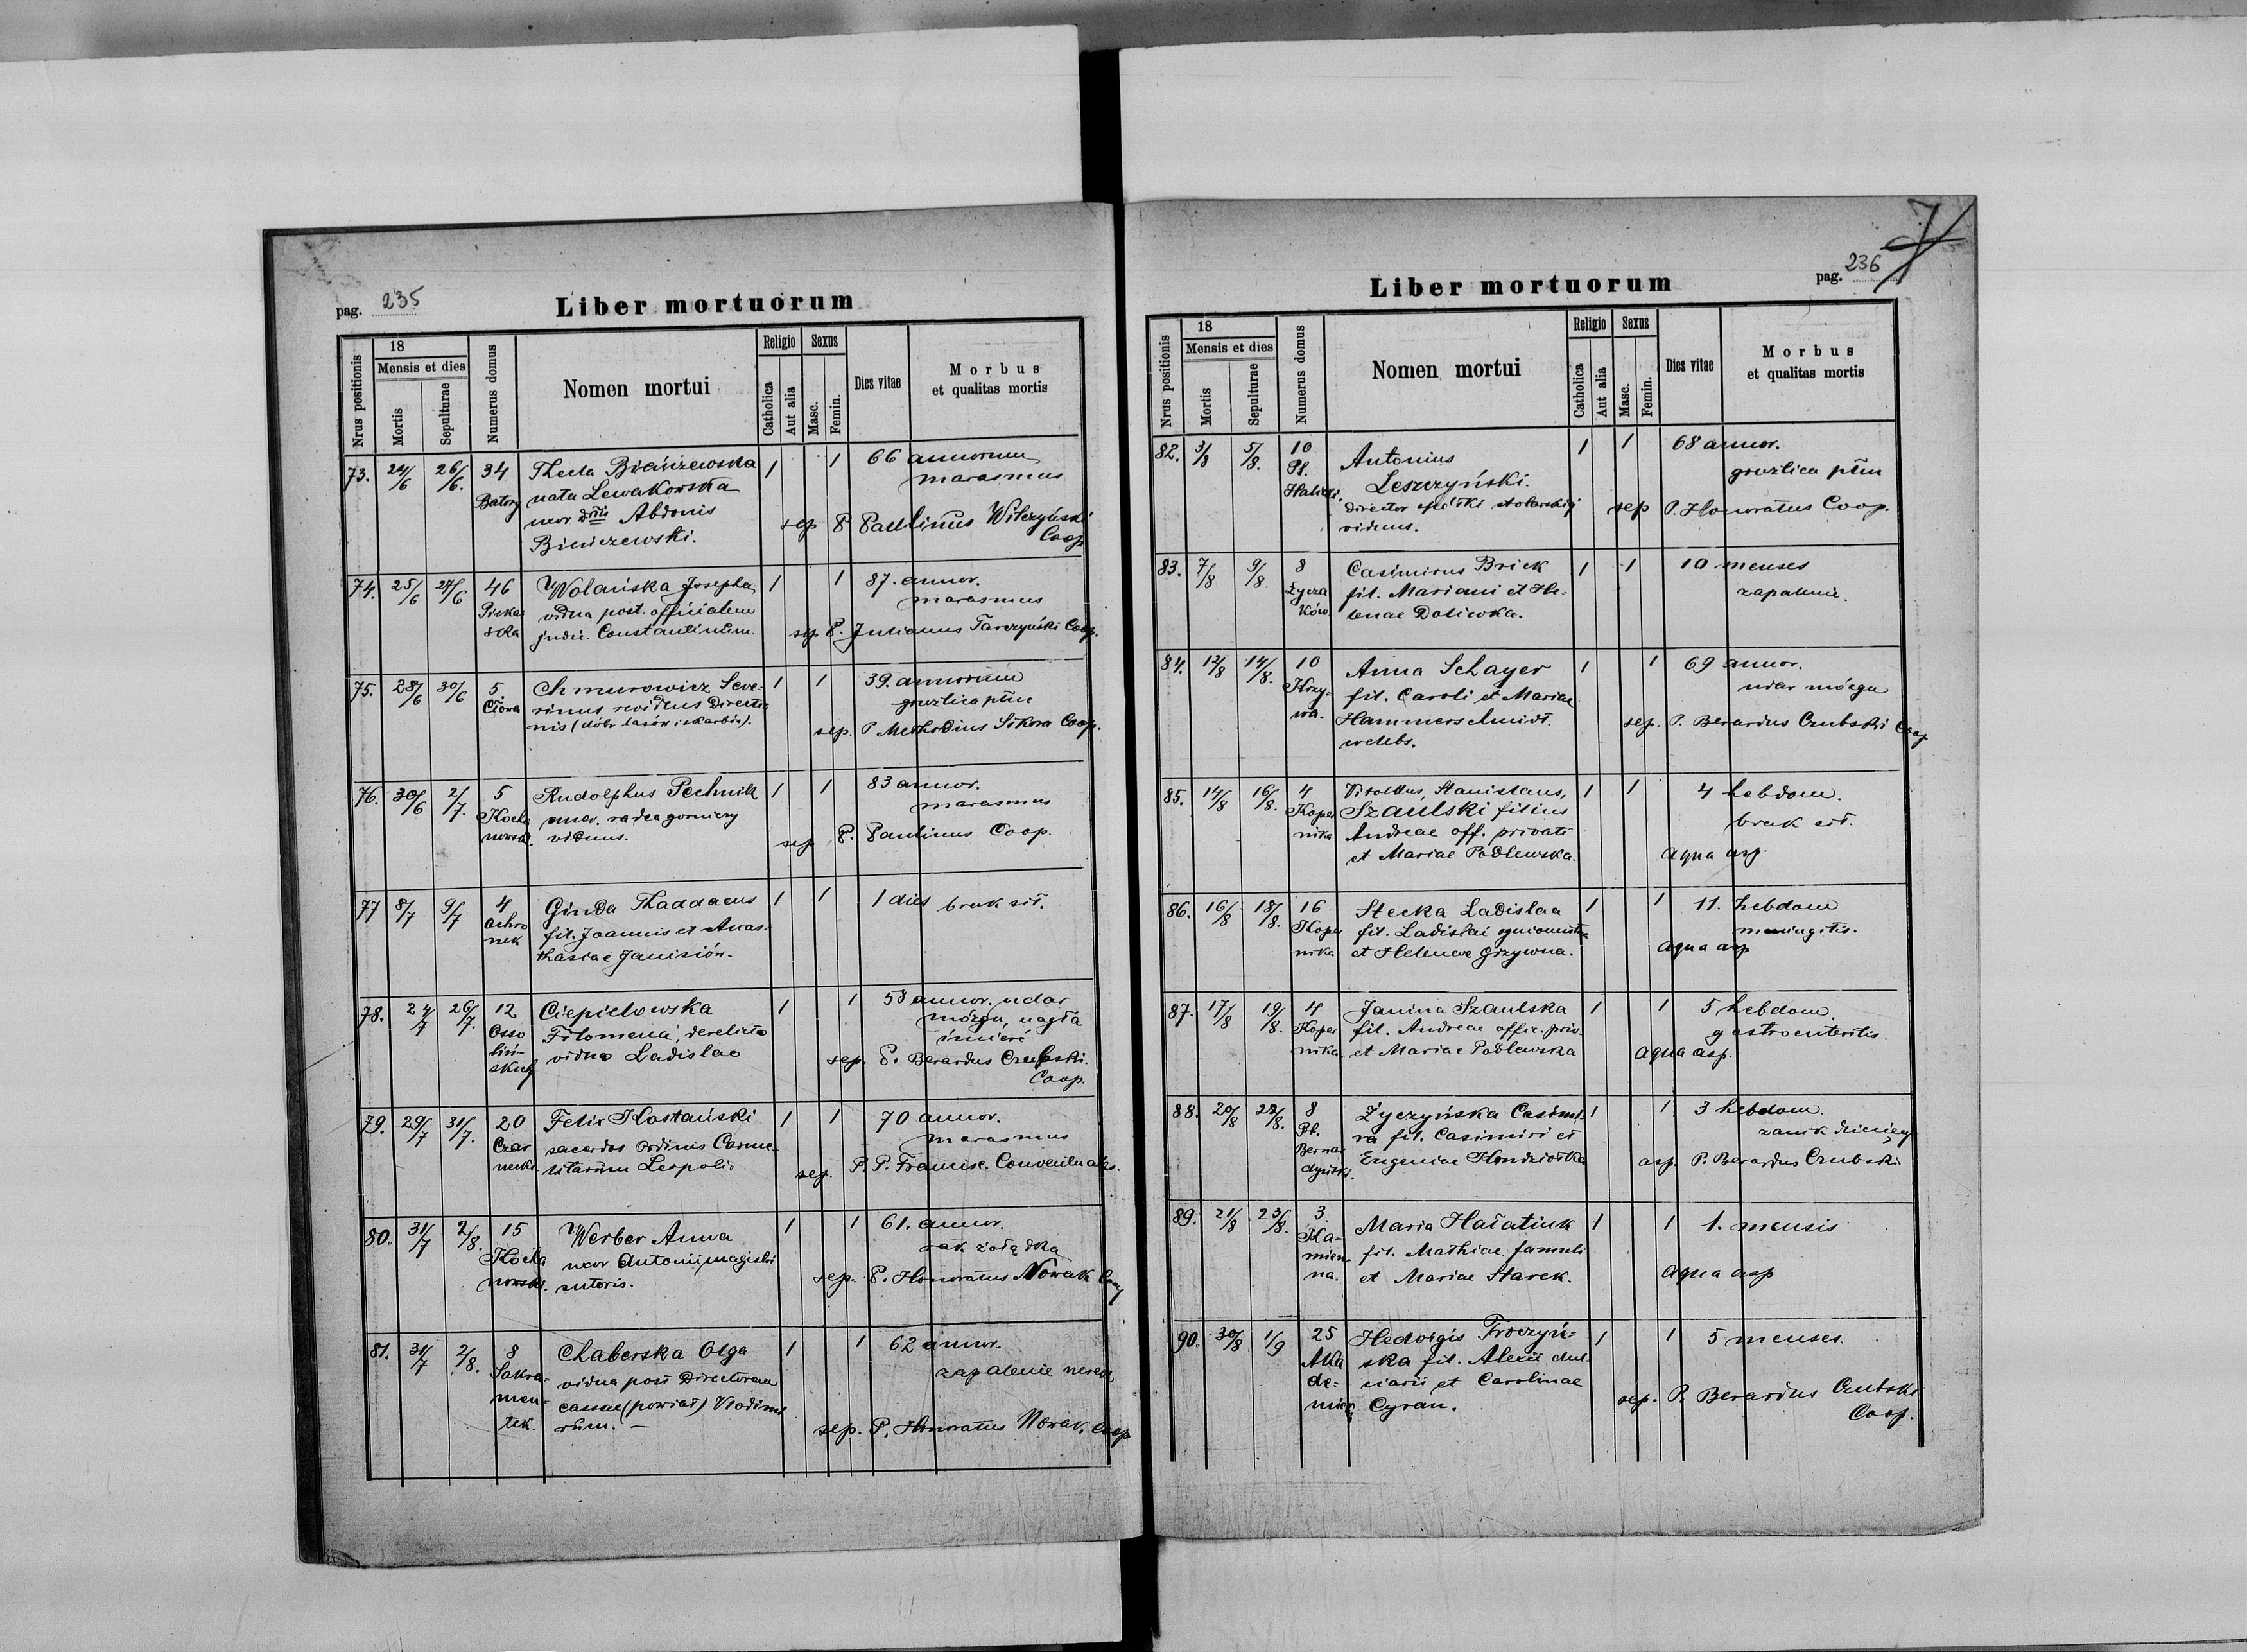 pag. 235
Liber mortuorum
Nrus positionis
18
Mensis et dies
Mortis
Sepulturae
Numerus domus
Nomen mortui
Religio
Catholica
Aut alia
Sexus
Masc.
Femin.
Dies vitae
Morbus
et qualitas mortis
73. 24/6 26/6. 34 Thecla Bieńczewska 1 1 66 annorum
Batory nata Lewakowska marasmus
uxor Abdonis sep P Paulinus Wilczyński
Bieńczewski. Coop
74. 25/6 27/6 46 Wolańska Josepha 1 1 87. annor.
Piekar vidua post. officialem marasmus
ska judic. Constantinum. sep P. Julianus Tarczyński Coop.
75. 28/6 30/6 5 Chmurowicz Seve- 1 1 39. annorum
rinus Directio gruzlica płuc
nis (dóbr lasów i skarbów). sep. P Methodius Sikora Coop.
76. 30/6 2/7. 5 Rudolphus Pechnik 1 1 83 annor.
Kocha emer. radca gorniczy marasmus
nowsk. viduus. sep P. Paulinus Coop.
77 8/7 9/7 4 Ginda Thaddaeus 1 1 1 dies brak sił.
Ochro fil. Joannis et Anas-
nek thasiae Janisión.
78. 24/7 26/7. 12 Ciepielowska 1 1 58 annor. udar
Osso Filomena, derelicta mózgu, nagła
liń- vidua Ladislao śmierć
skich sep. P. Berardus Czubski.
Coop.
79. 29/7 31/7. 20 Felix Kostański 1 1 70 annor.
Czar sacerdos Ordinis Carme- marasmus
necki. litarum Leopoli. sep. P. P. Francisc. Conventuales.
80. 31/7 2/8. 15 Werber Anna 1 1 61. annor.
Kocha uxor Antonii, magistri rak żołądka
nowsk. sutoris. sep. P. Honoratus Nowak Coop
81. 31/7 2/8. 8 Chaberska Olga 1 1 62 annor.
Sakra- vidua post Directorem zapalenie nerek
men- cassae (powiat) Vlodimi
tek. rum. — sep. P. Honoratus Nowak, Coop
Liber mortuorum
pag. 236
7
Nrus positionis
18
Mensis et dies
Mortis
Sepulturae
Numerus domus
Nomen mortui
Religio
Catholica
Aut alia
Sexus
Masc.
Femin.
Dies vitae
Morbus
et qualitas mortis
82. 3/8 5/8. 10 Antonius 1 1 68 annor.
Pl. Leszczyński. gruzlica płuc
Halicki. director stolarskiej sep P. Honoratus Coop.
viduus.
83. 7/8 9/8. 8 Casimirus Brick 1 1 10 menses
Łycza fil. Mariani et He- zapalenie.
ków lenae Doliwka.
84. 12/8 14/8. 10 Anna Schayer 1 1 69 annor.
Krzy- fil. Caroli et Mariae udar mózgu
wa. Hammerschmidt. sep. P. Berardus Czubski Coop
caelebs.
85. 14/8 16/8. 4 Vitoldus, Stanislaus, 1 1 4 hebdom.
Koper Szaulski filius brak sił.
nika Andreae off. privati
et Mariae Podlewska. aqua asp.
86. 16/8 18/8. 16 Stecka Ladislaa 1 1 11. hebdom
Koper fil. Ladislai ogniomistrz meningitis.
nika et Helenae Grzywna. aqua asp
87. 17/8 19/8. 4 Janina Szaulska 1 1 5 hebdom.
Koper fil. Andreae offic. priv. gastroenteritis.
nika. et Mariae Podlewska aqua asp.
88. 20/8 22/8. 8 Życzyńska Casimi- 1 1 3 hebdom.
Pl. ra fil. Casimiri et zanik dziecięcy
Bernar Eugeniae Kondziołka asp. P. Berardus Czubski
dyński.
89. 21/8 23/8. 3. Maria Hałatiuk 1 1 1. mensis
Ka- fil. Mathiae famuli
mien et Mariae Starek. aqua asp
na.
90. 30/8 1/9 25 Hedvigis Troczyń- 1 1 5 menses.
Aka ska fil. Alexii
de- et Carolinae sep. P. Berardus Czubski
micka Cyran. Coop.